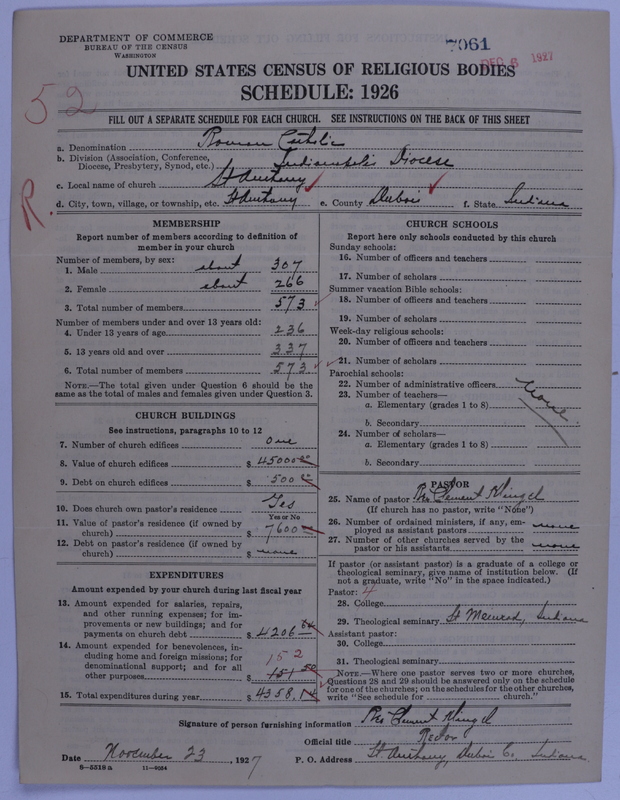 DEPARTMENT OF COMMERCE
BUREAU OF THE CENSUS
WASHINGTON
7061
DEC 6 1927
UNITED STATES CENSUS OF RELIGIOUS BODIES
SCHEDULE: 1926
52
R.
FILL OUT A SEPARATE SCHEDULE FOR EACH CHURCH. SEE INSTRUCTIONS ON THE BACK OF THIS SHEET
a. Denomination Roman Catholic
b. Division (Association, Conference, Diocese, Presbytery, Synod, etc.) Indianapolis Diocese
c. Local name of church St Anthony
d. City, town, village, or township, etc. St Anthony e. County Dubois f. State Indiana
MEMBERSHIP
Report number of members according to definition of member in your church
Number of members, by sex:
1. Male about 307
2. Female about 266
3. Total number of members 573
Number of members under and over 13 years old:
4. Under 13 years of age 236
5. 13 years old and over 337
6. Total number of members 573
NOTE.—The total given under Question 6 should be the same as the total of males and females given under Question 3.
CHURCH BUILDINGS
See instructions, paragraphs 10 to 12
7. Number of church edifices One
8. Value of church edifices $ 45000.00
9. Debt on church edifices $ 500.00
10. Does church own pastor's residence Yes
Yes or No
11. Value of pastor's residence (if owned by church) $ 7600
12. Debt on pastor's residence (if owned by church) $ none
EXPENDITURES
Amount expended by your church during last fiscal year
13. Amount expended for salaries, repairs, and other running expenses; for improvements or new buildings; and for payments on church debt $ 4206.64
14. Amount expended for benevolences, including home and foreign missions; for denominational support; and for all other purposes $ 151.50
152
15. Total expenditures during year $ 4358.14
CHURCH SCHOOLS
Report here only schools conducted by this church
Sunday schools:
16. Number of officers and teachers
17. Number of scholars
Summer vacation Bible schools:
18. Number of officers and teachers
19. Number of scholars
Week-day religious schools:
20. Number of officers and teachers
21. Number of scholars
Parochial schools:
22. Number of administrative officers
23. Number of teachers—
a. Elementary (grades 1 to 8)
none
b. Secondary
24. Number of scholars—
a. Elementary (grades 1 to 8)
b. Secondary
PASTOR
25. Name of pastor Clement
(If church has no pastor, write "None")
26. Number of ordained ministers, if any, employed as assistant pastors none
27. Number of other churches served by the pastor or his assistants none
If pastor (or assistant pastor) is a graduate of a college or theological seminary, give name of institution below. (If not a graduate, write "No" in the space indicated.)
Pastor: 4
28. College
29. Theological seminary St Meinrad, Indiana
Assistant pastor:
30. College
31. Theological seminary
NOTE.—Where one pastor serves two or more churches, Questions 28 and 29 should be answered only on the schedule for one of the churches; on the schedules for the other churches, write "See schedule for church."
Signature of person furnishing information Clement
Official title Rector
Date November 23, 1927 P. O. Address St Anthony, Dubois Co. Indiana
8—5518a 11—9054